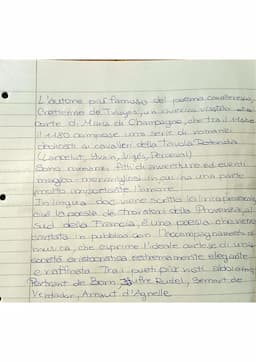 L'autore più famoso del poema cavalleresco,
Cretienne de Troyes, un chierico vissuto alla
corte di Maria di Champagne, che tra il 1160 e
il 1180 compose una serie di romanzi
dedicati ai cavalieri della Tavola Rotonda
(Lancelot, Yvain, Perceval)
Sono romanzi fitti di avventure ed eventi
magico-meravigliosi in cui ha una parte
molto importante l'amore.
In lingua doc viene scritta la lirica provenzale,
cioè la poesia dei trovatori della Provenza, al
sud della Francia, è una poesia che veniva
cantata in pubblico con l'accompagnamento di
musica, che esprime l'ideale cortese di una
società aristocratica estremamente elegante
e raffinata. Tra i poeti più noti abbiamo
Bertrant de Born, Jaufre Rudel, Bernart de
Ventador, Arnaut d'Agnelle